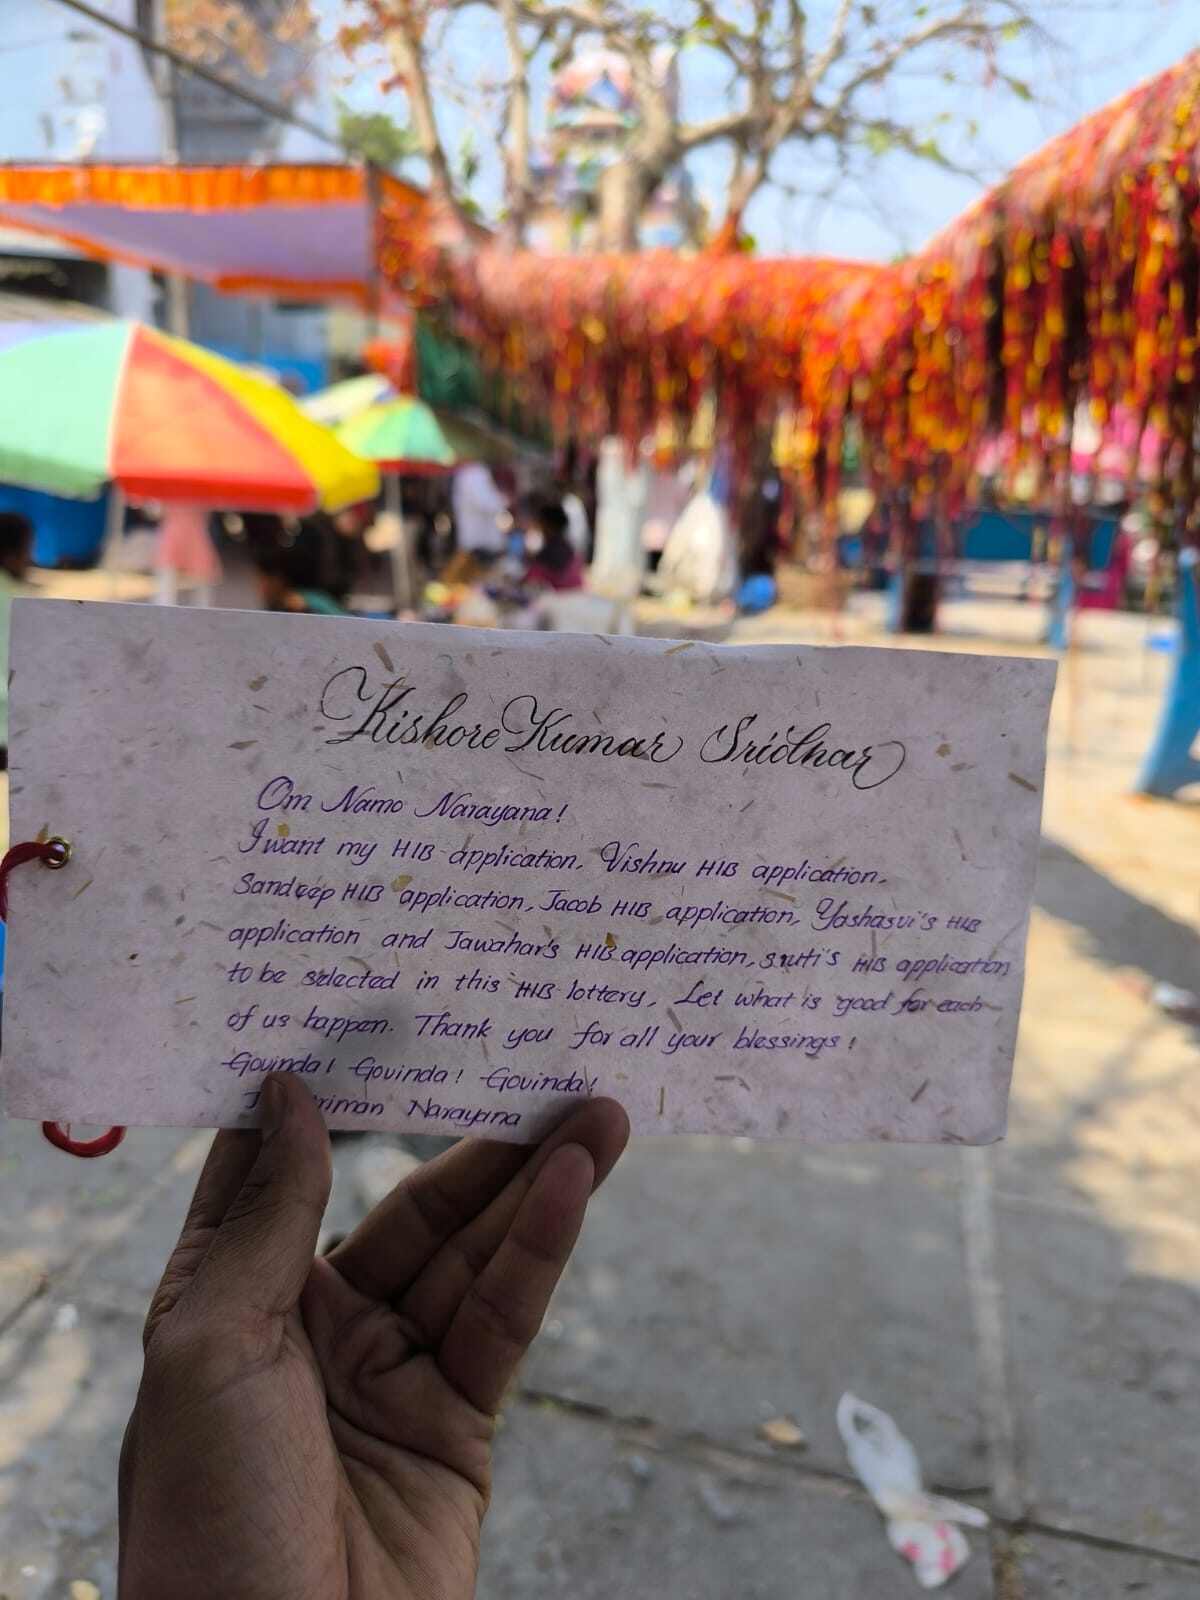 Kishore Kumar Sridhar
Om Namo Narayana!
I want my H1B application, Vishnu H1B application,
Sandeep H1B application, Jacob H1B application, Yashasvi's H1B
application and Jawahar's H1B application, sruti's H1B application
to be selected in this H1B lottery, Let what is good for each
of us happen. Thank you for all your blessings!
Govinda! Govinda! Govinda!
Narayana